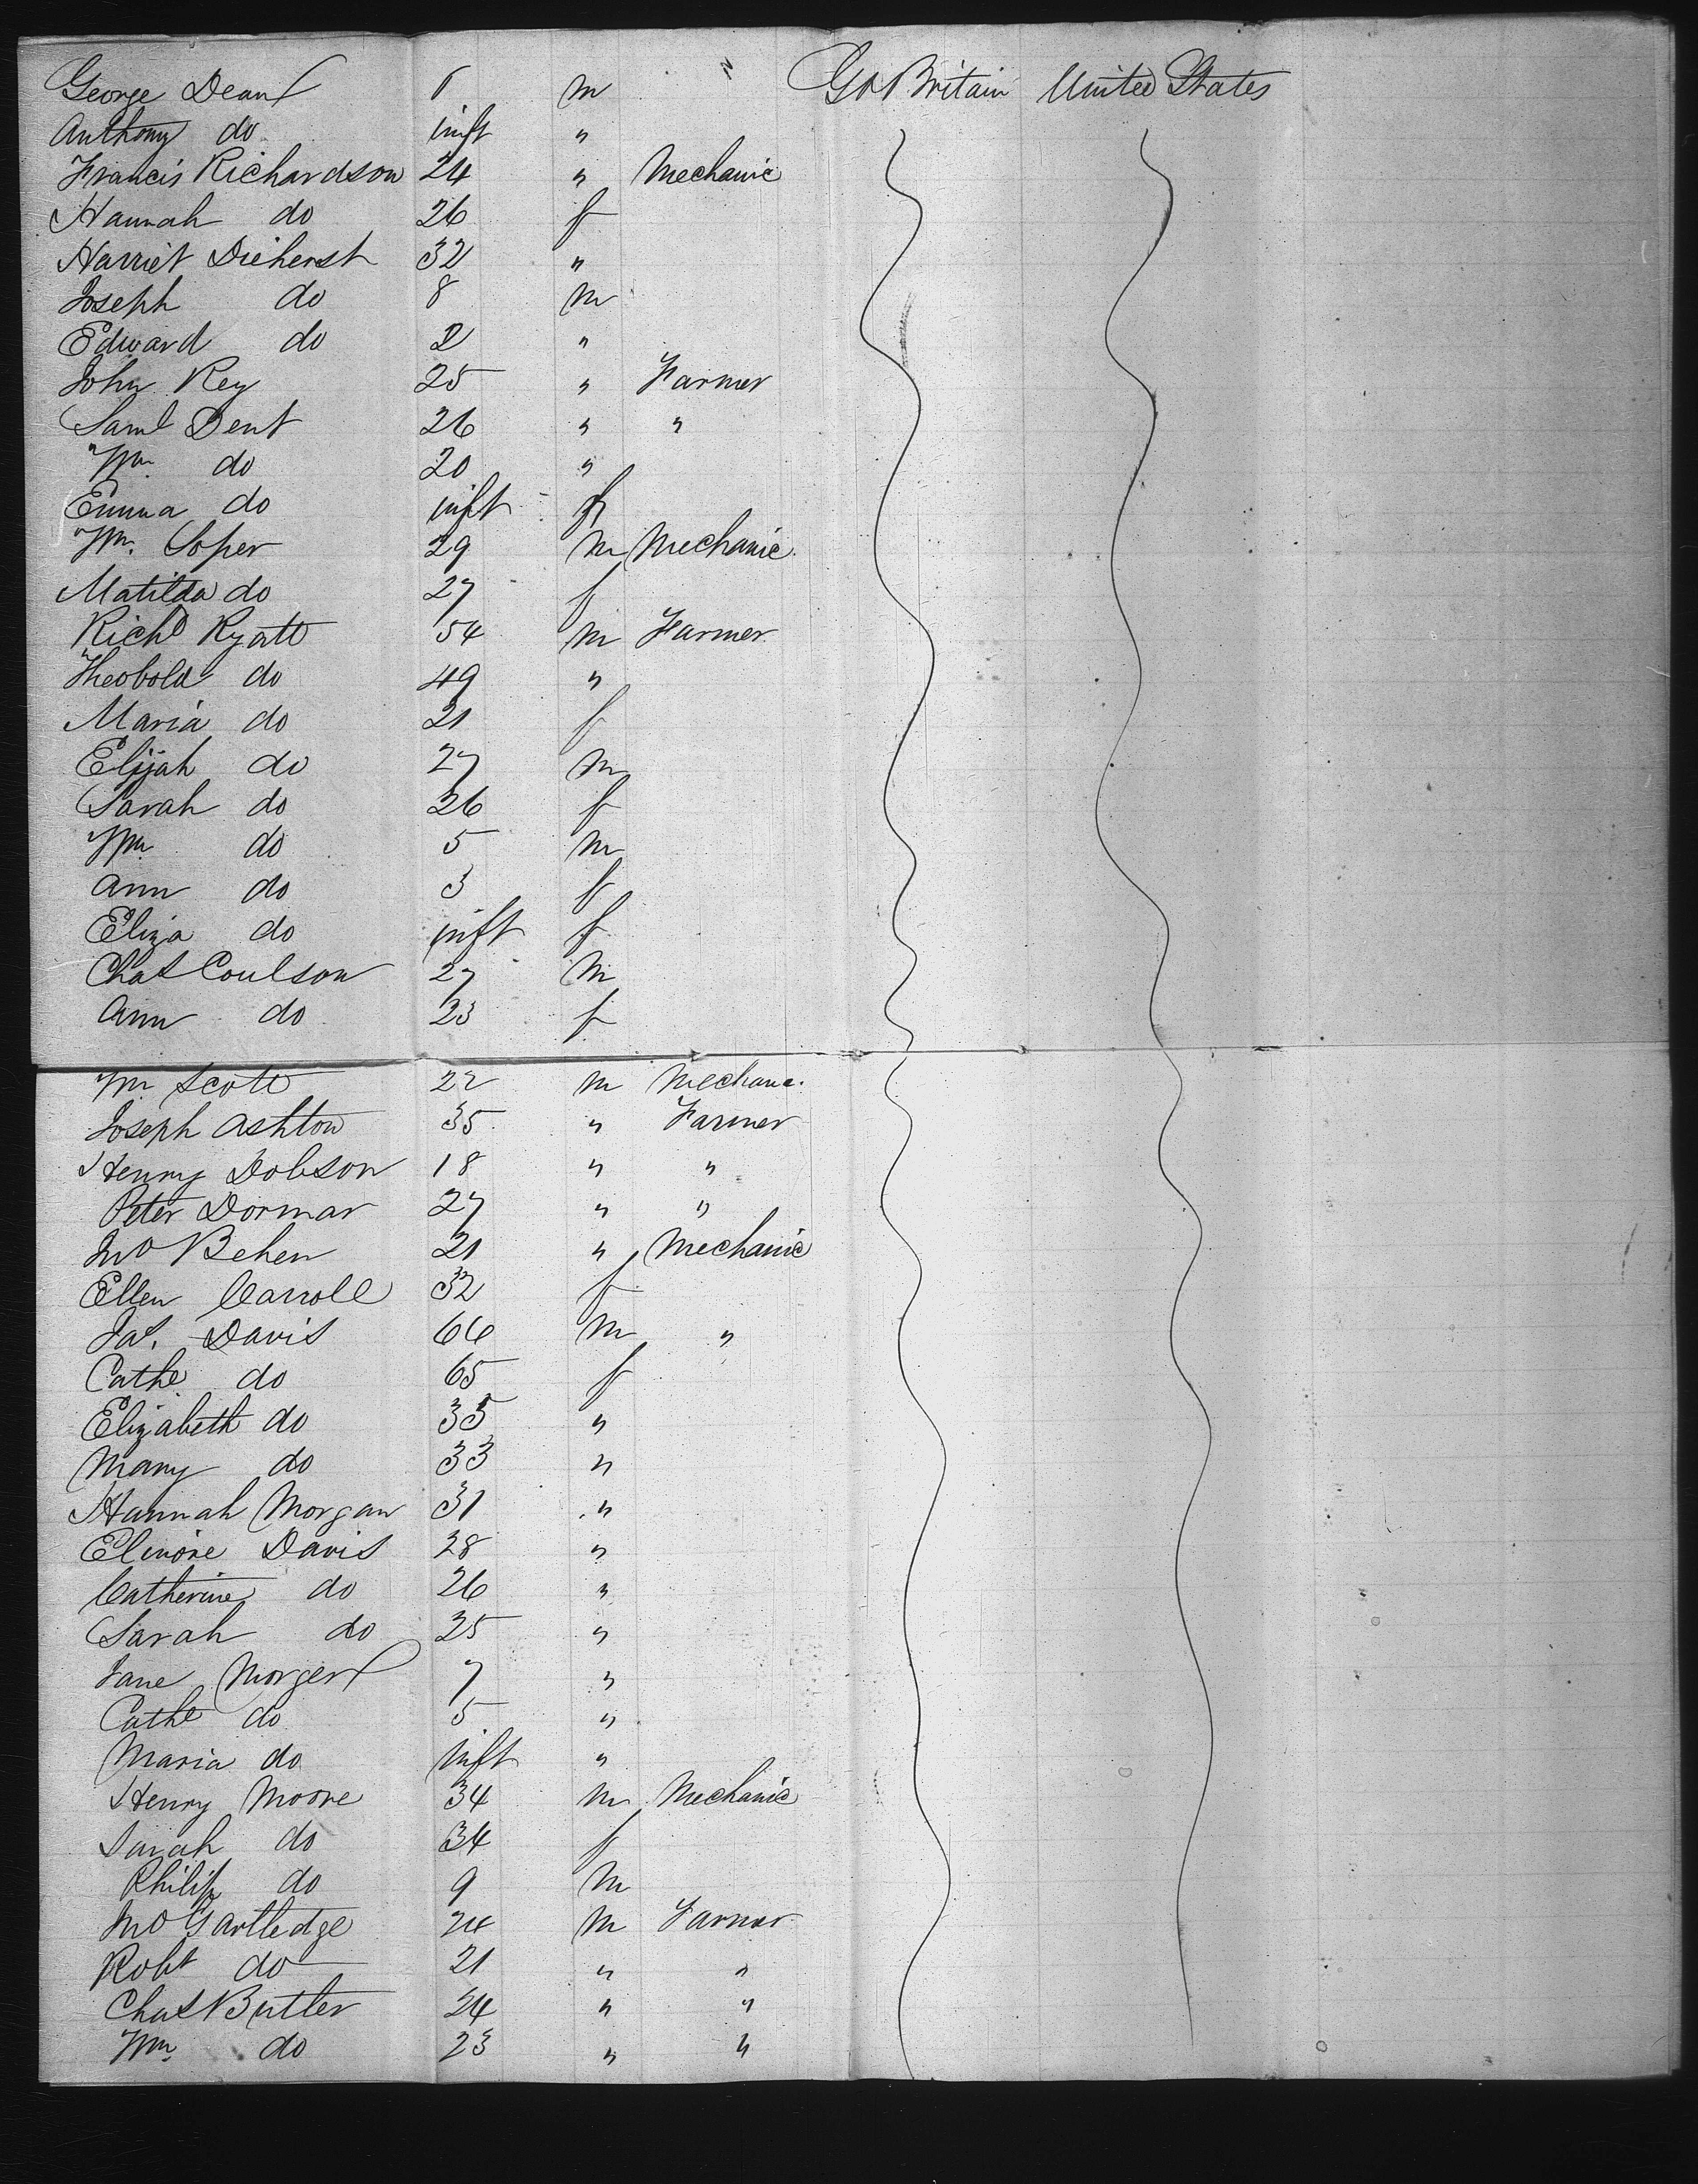 George Dean 6 m Gt Britain United States
Anthony do inft "
Francis Richardson 24 " Mechanic
Hannah do 26 f
Harriet Diehenst 32 "
Joseph do 8 m
Edward do 2 "
John Rey 25 " Farmer
Saml Dent 26 " "
Wm do 20 "
Emma do inft f
Wm. Soper 29 m Mechanic
Matilda do 27 f
Richd Ryatt 54 m Farmer
Theobold do 49 "
Maria do 21 f
Elijah do 27 m
Sarah do 26 f
Wm do 5 m
Ann do 3 f
Eliza do inft f
Chas Coulson 27 m
Ann do 23 f
Wm Scott 22 m Mechanc.
Joseph Ashton 35 " Farmer
Henry Dobson 18 " "
Peter Dorman 27 " "
Jno Behen 21 " Mechanic
Ellen Carroll 32 f
Jas. Davis 66 m "
Cathe do 65 f
Elizabeth do 35 "
Mary do 33 "
Hannah Morgan 31 "
Elinore Davis 28 "
Catherine do 26 "
Sarah do 25 "
Jane Morger 7 "
Cathe do 5 "
Maria do inft "
Henry Moore 34 m Mechanic
Sarah do 34 f
Philip do 9 m
Jno Gartledge 24 m Farmer
Robt do 21 " "
Chas Butler 24 " "
Wm do 23 " "